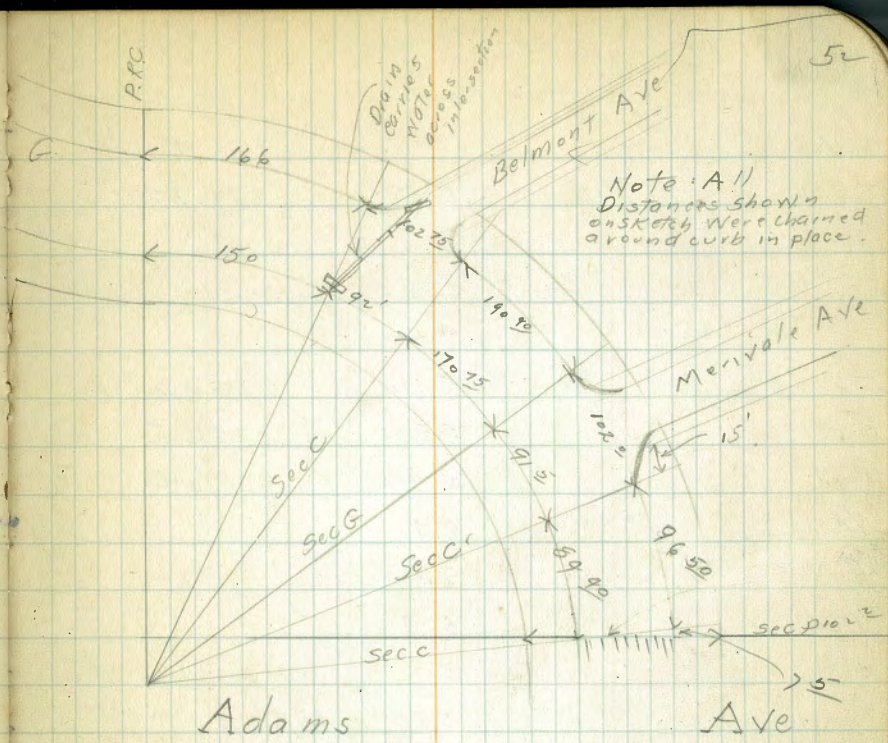 52
P.R.C.
Drain
Carries
Water
across
Inter-section
Belmont Ave
G
166
Note: All
Distances shown
on sketch were chained
around curb in place.
150
102 75
92'
190 90
170 75
Merivale Ave
102
15'
91
Sec C
Sec G
Sec C'
96 50
89 90
sec c
5
Adams Ave